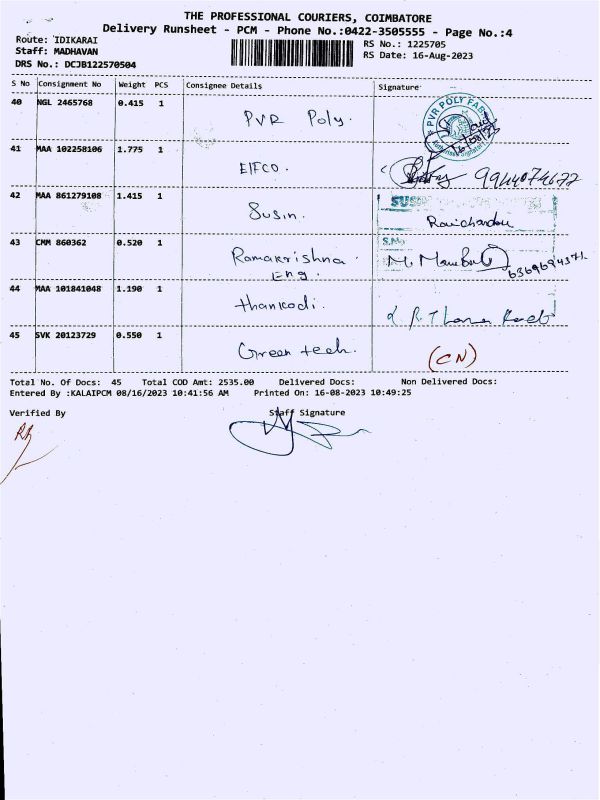 THE PROFESSIONAL COURIERS, COIMBATORE
Delivery Runsheet - PCM - Phone No.:0422-3505555 - Page No.:4
Route: 'IDIKARAI
RS No.: 1225705
Staff: MADHAVAN
RS Date: 16-Aug-2023
DRS No.: DCJB122570504
S No Consignment No Weight PCS Consignee Details Signature
40 NGL 2465768 0.415 1 PVR Poly. PVR POLY FAB
41 MAA 102258106 1.775 1 EIFCO. 9944074672
42 MAA 861279108 1.415 1 Susin. SUSI Ravichandran
43 CMM 860362 0.520 1 Ramakrishna Eng. S.No M. 6369694371
44 MAA 101841048 1.190 1 thankodi.
45 SVK 20123729 0.550 1 Green tech. (CN)
Total No. Of Docs: 45 Total COD Amt: 2535.00 Delivered Docs: Non Delivered Docs:
Entered By :KALAIPCM 08/16/2023 10:41:56 AM Printed On: 16-08-2023 10:49:25
Verified By Staff Signature